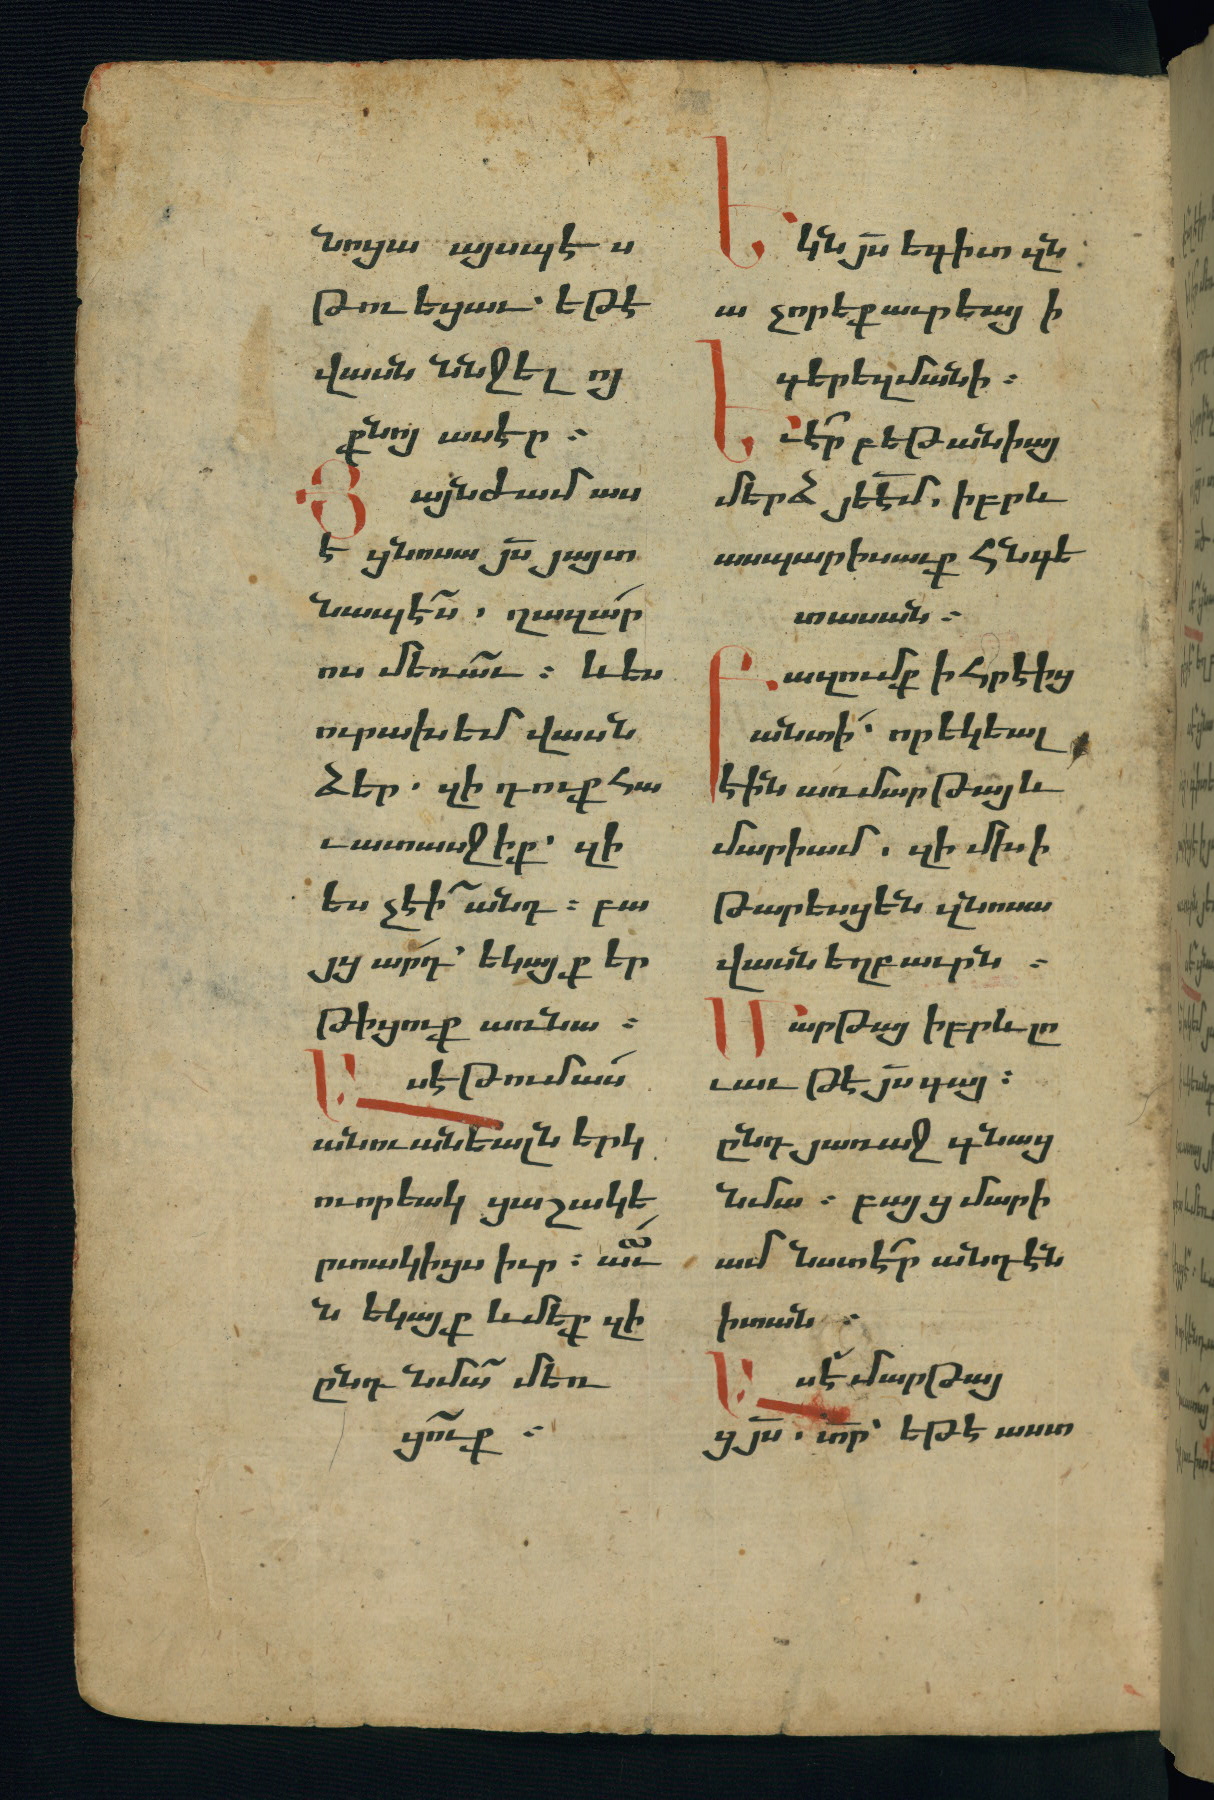 նոցա այսպէս
թուեցաւ՝ եթէ
վասն ննջելոյ
քնոյ ասէր ։
Յայնժամ աս
է ցնոսա յս յայտ
նապէս ․ ղազար
ոս մեռաւ ։ և ես
ուրախ եմ վասն
ձեր ․ զի դուք հա
ւատասջիք՝ զի
ես չէի անդ ։ բա
յց արդ՝ եկայք եր
թիցուք առ նա ։
Ասէ թումաս
անուանեալն երկ
ուորեակ ցաշակե
րտակիցս իւր ։ աւ
ն եկայք և մեք զի
ընդ նմա մեռ
ցուք ։
Եկն յս եգիտ զն
ա չորեքաւրեայ ի
գերեզմանի ։
Եւ էր բեթանիայ
մերձ յեէմ ․ իբրև
ասպարիսաւք հնգե
տասան ։
Բազումք ի հրէից
անտի՝ որ եկեալ
էին առ մարթայ և
մարիամ ․ զի մխի
թարեսցեն զնոսա
վասն եղբաւրն ։
Մարթայ իբրև լը
ւաւ թէ յս գայ ։
ընդ յառաջ գնաց
նմա ։ բայց մարի
ամ նստէր անդէն
ի տան ։
Ասէ մարթայ
ցյս ․ տր՝ եթէ աստ